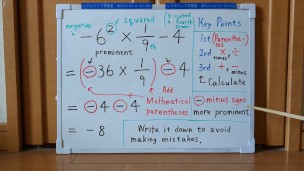 negative squared 3 cubed
4 fourth power
-6² × 1/9th - 4
prominent
= (-36 × 1/9) - 4
= -4 - 4
Add
Mathmatical
parentheses
= -8
Key Points
1st (Parenthe-
ses
2nd × ÷
times,
3rd + - minus
Calculate
- minus signs
more prominent
Write it down to avoid
making mistakes.